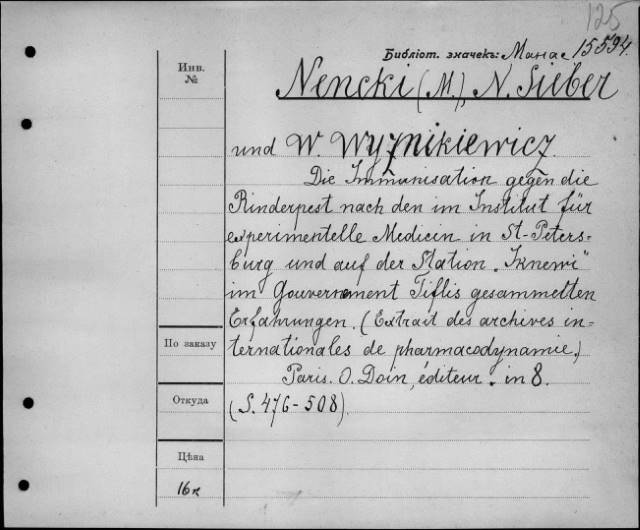 125
Библіот. значекъ: Манас 15594.
Инв.
№
Nencki (M.), N. Sieber
und W. Wyżnikiewicz.
Die Immunisation gegen die
Rinderpest nach den im Institut für
experimentelle Medicin in St-Peters=
burg und auf der Station "Iknewi"
im Gouvernement Tiflis gesammetten
Erfahrungen. (Extrait des archives in=
ternationales de pharmacodynamie.)
По заказу
Paris. O. Doin, éditeur. in 8.
Откуда
(S. 476-508).
Цѣна
16к